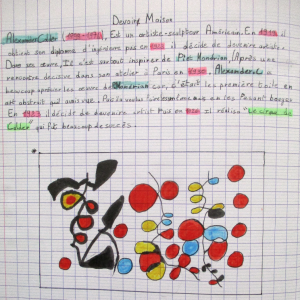 Devoir Maison
Alexander Calder (1898-1976), Est un artiste-sculpteur Américain. En 1919 il
obtient son diplome d'ingénieur puis en il décide de devenir artiste.
Dans ses œuvre, Il c'est surtout inspirer de Piet Mondrian, (Après une
rencontre décisive dans son atelier à Paris en 1930, Alexander
a beaucoup apprécier les œuvre de Mondrian car, c'était les première toile en
art abstrait qu'il avais vue. Puis la voulus les faire bouger
En il décide de devenir artist il réalise "Le
Calder" qui fut beaucoup de succès.